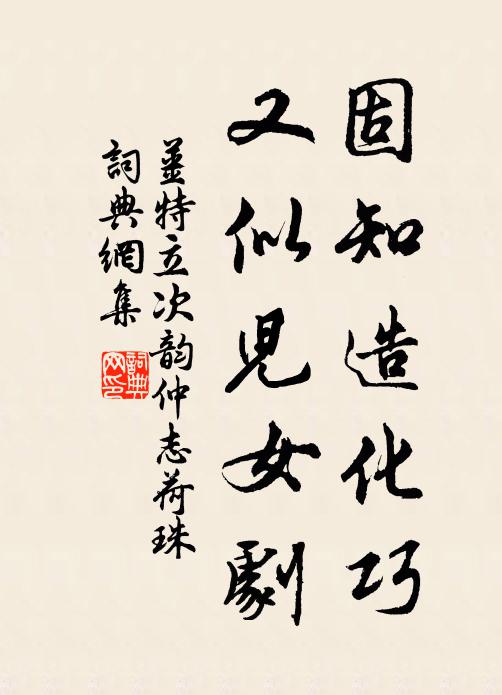 固知造化巧
又似兒女劇
薑特立次韵仲志荷珠
詞典網集
詞典网印